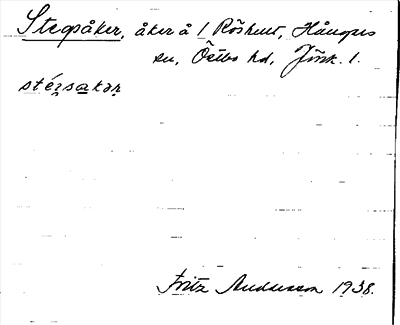 Stegsåker, åker å 1 Röshult, Hångers
sn, Östbo hd, Jönk. l.
stégsakər
Fritz Andersson 1938.